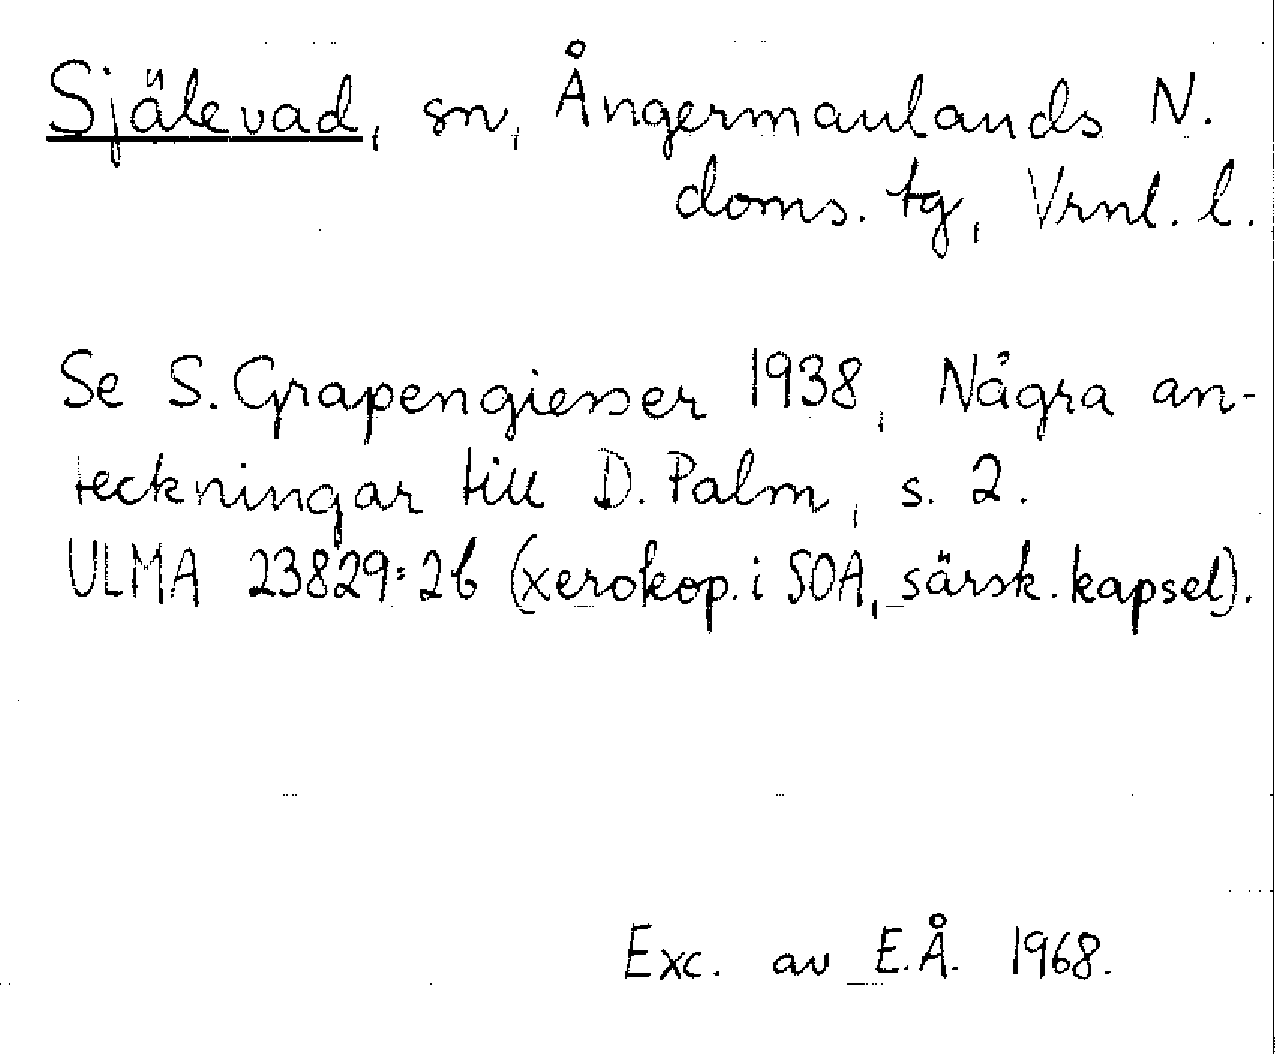 Själevad, sn, Ångermanlands N.
doms. tg, Vrnl. l.
Se S. Grapengiesser 1938, Några an-
teckningar till D. Palm, s. 2.
ULMA 23829:2b (xerokop. i SOA, särsk. kapsel).
Exc. av E.Å. 1968.